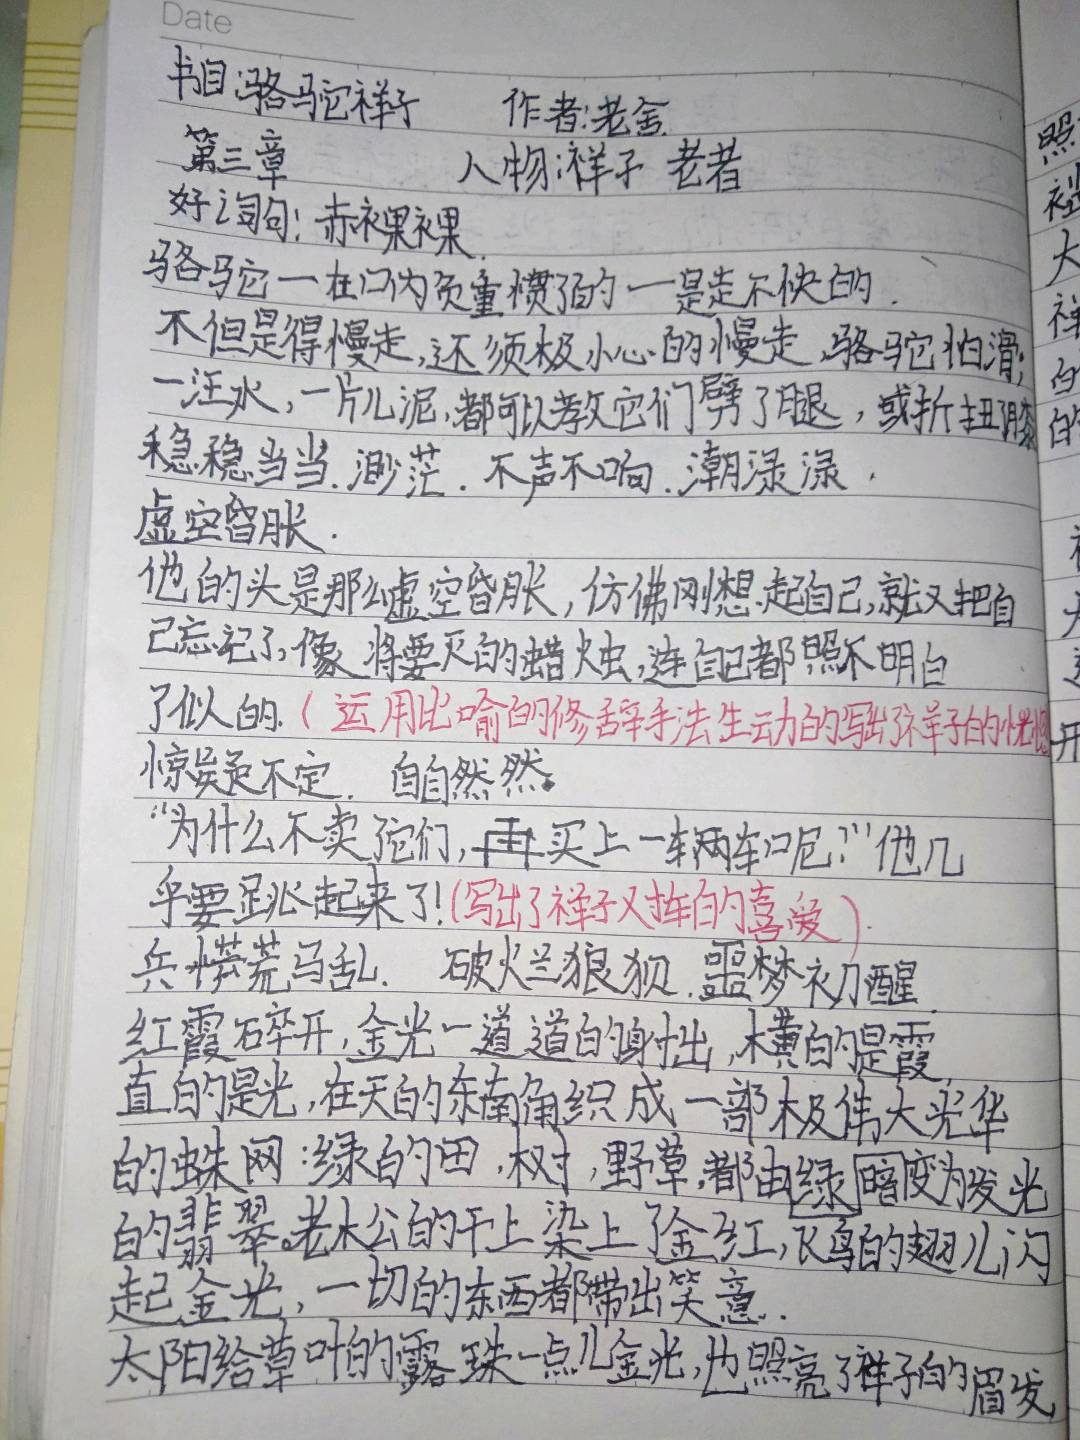 Date
书目:骆驼祥子 作者:老舍
第三章 人物:祥子 老者
好词句:赤裸裸.
骆驼一在口内负重惯了的一是走不快的.
不但是得慢走,还须极小心的慢走,骆驼怕滑;
一汪水,一片儿泥,都可以教它们劈了腿,或折扭了膝
稳稳当当.渺茫.不声不响.潮渌渌.
虚空昏胀.
他的头是那么虚空昏胀,仿佛刚想起自己,就又把自
己忘记了,像将要灭的蜡烛,连自己都照不明白
了似的.(运用比喻的修辞手法生动的写出了祥子的恍惚
惊疑不定. 自自然然.
“为什么不卖了它们,再买上一辆车呢?”他几
乎要跳起来了!(写出了祥子对车的喜爱).
兵慌荒马乱. 破烂狼狈.噩梦初醒.
红霞碎开,金光一道道的射出,横的是霞,
直的是光,在天的东南角织成一部极伟大光华
的蛛网:绿的田,树,野草,都由绿暗变为发光
的翡翠。老木公的干上染上了金红,飞鸟的翅儿闪
起金光,一切的东西都带出笑意.
太阳给草叶的露珠一点儿金光,也照亮了祥子的眉发
照
大
祥
白
的
开